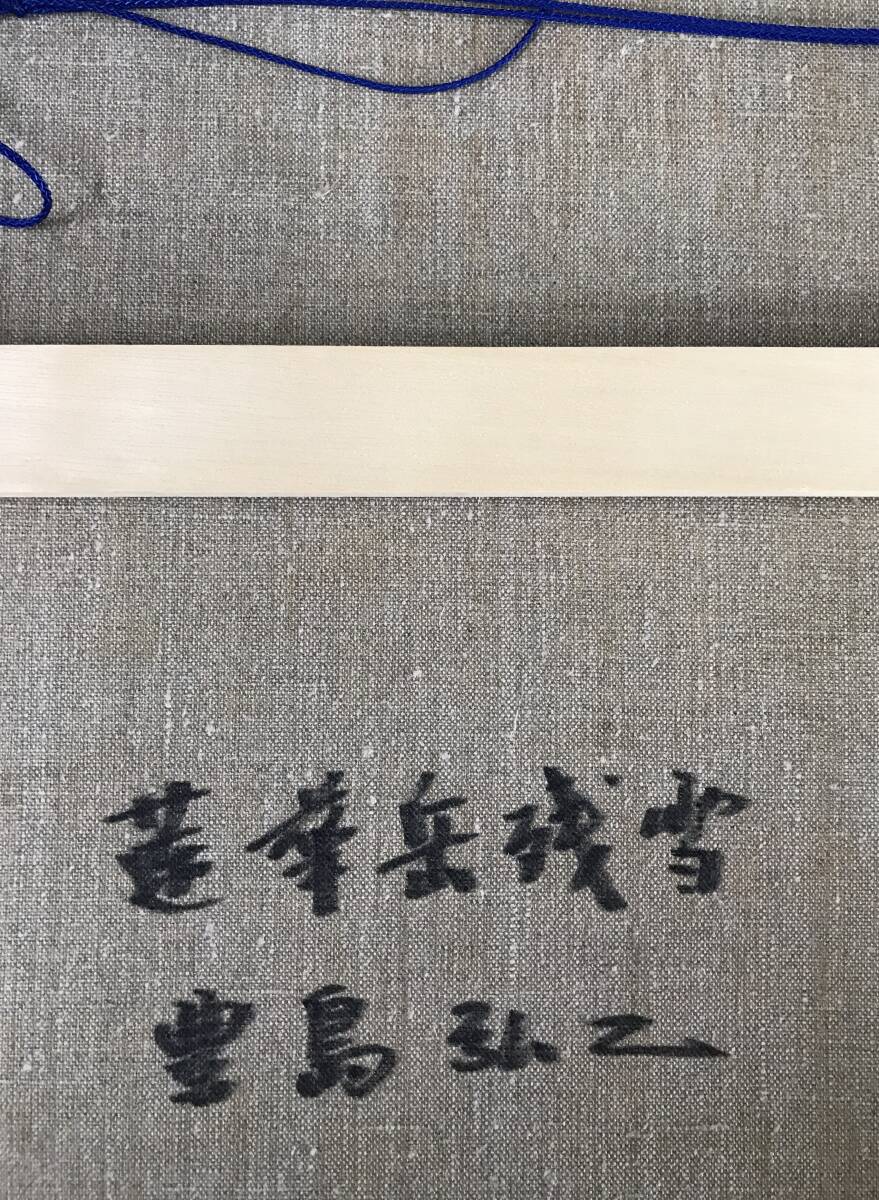 蓮華岳残雪
豊島弘乙